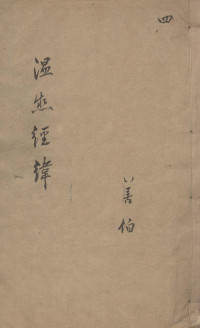 四
善伯
温热經緯